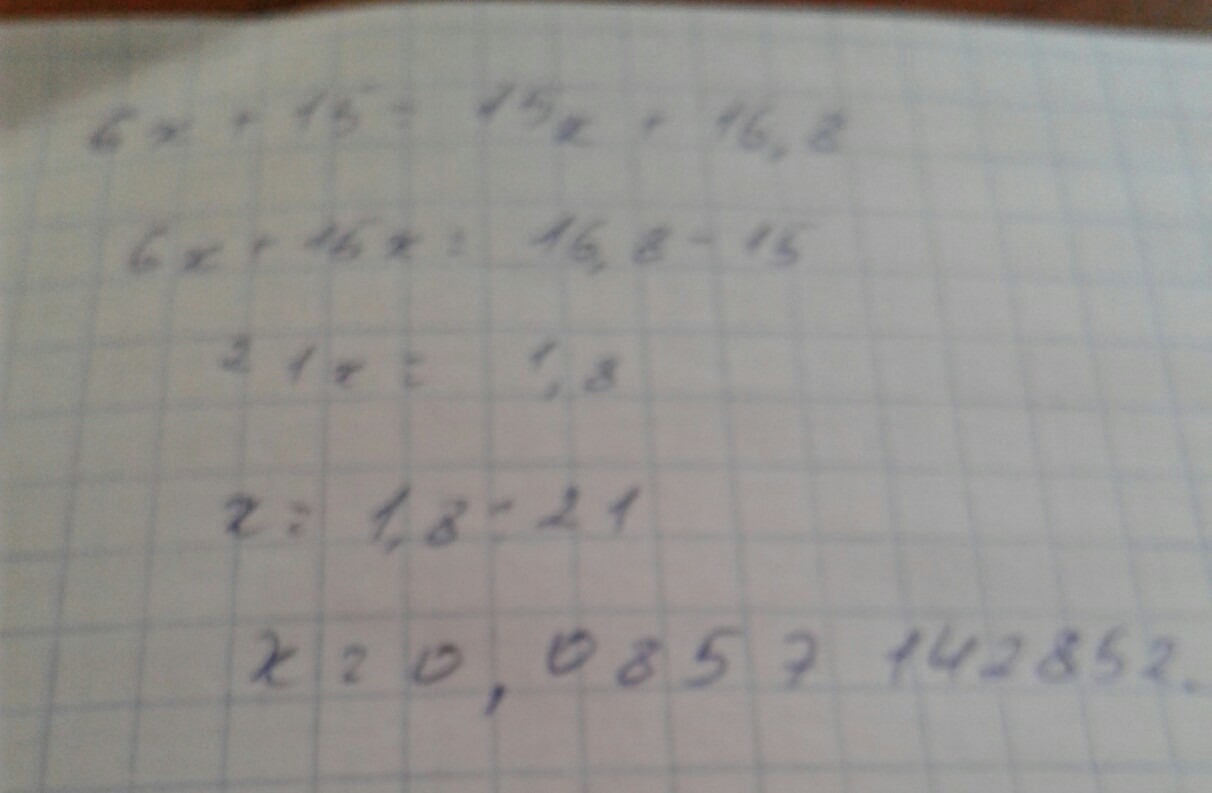 6x + 15 = 15x + 16,8
6x + 15x = 16,8 - 15
21x = 1,8
x = 1,8 : 21
x = 0,0857142852.